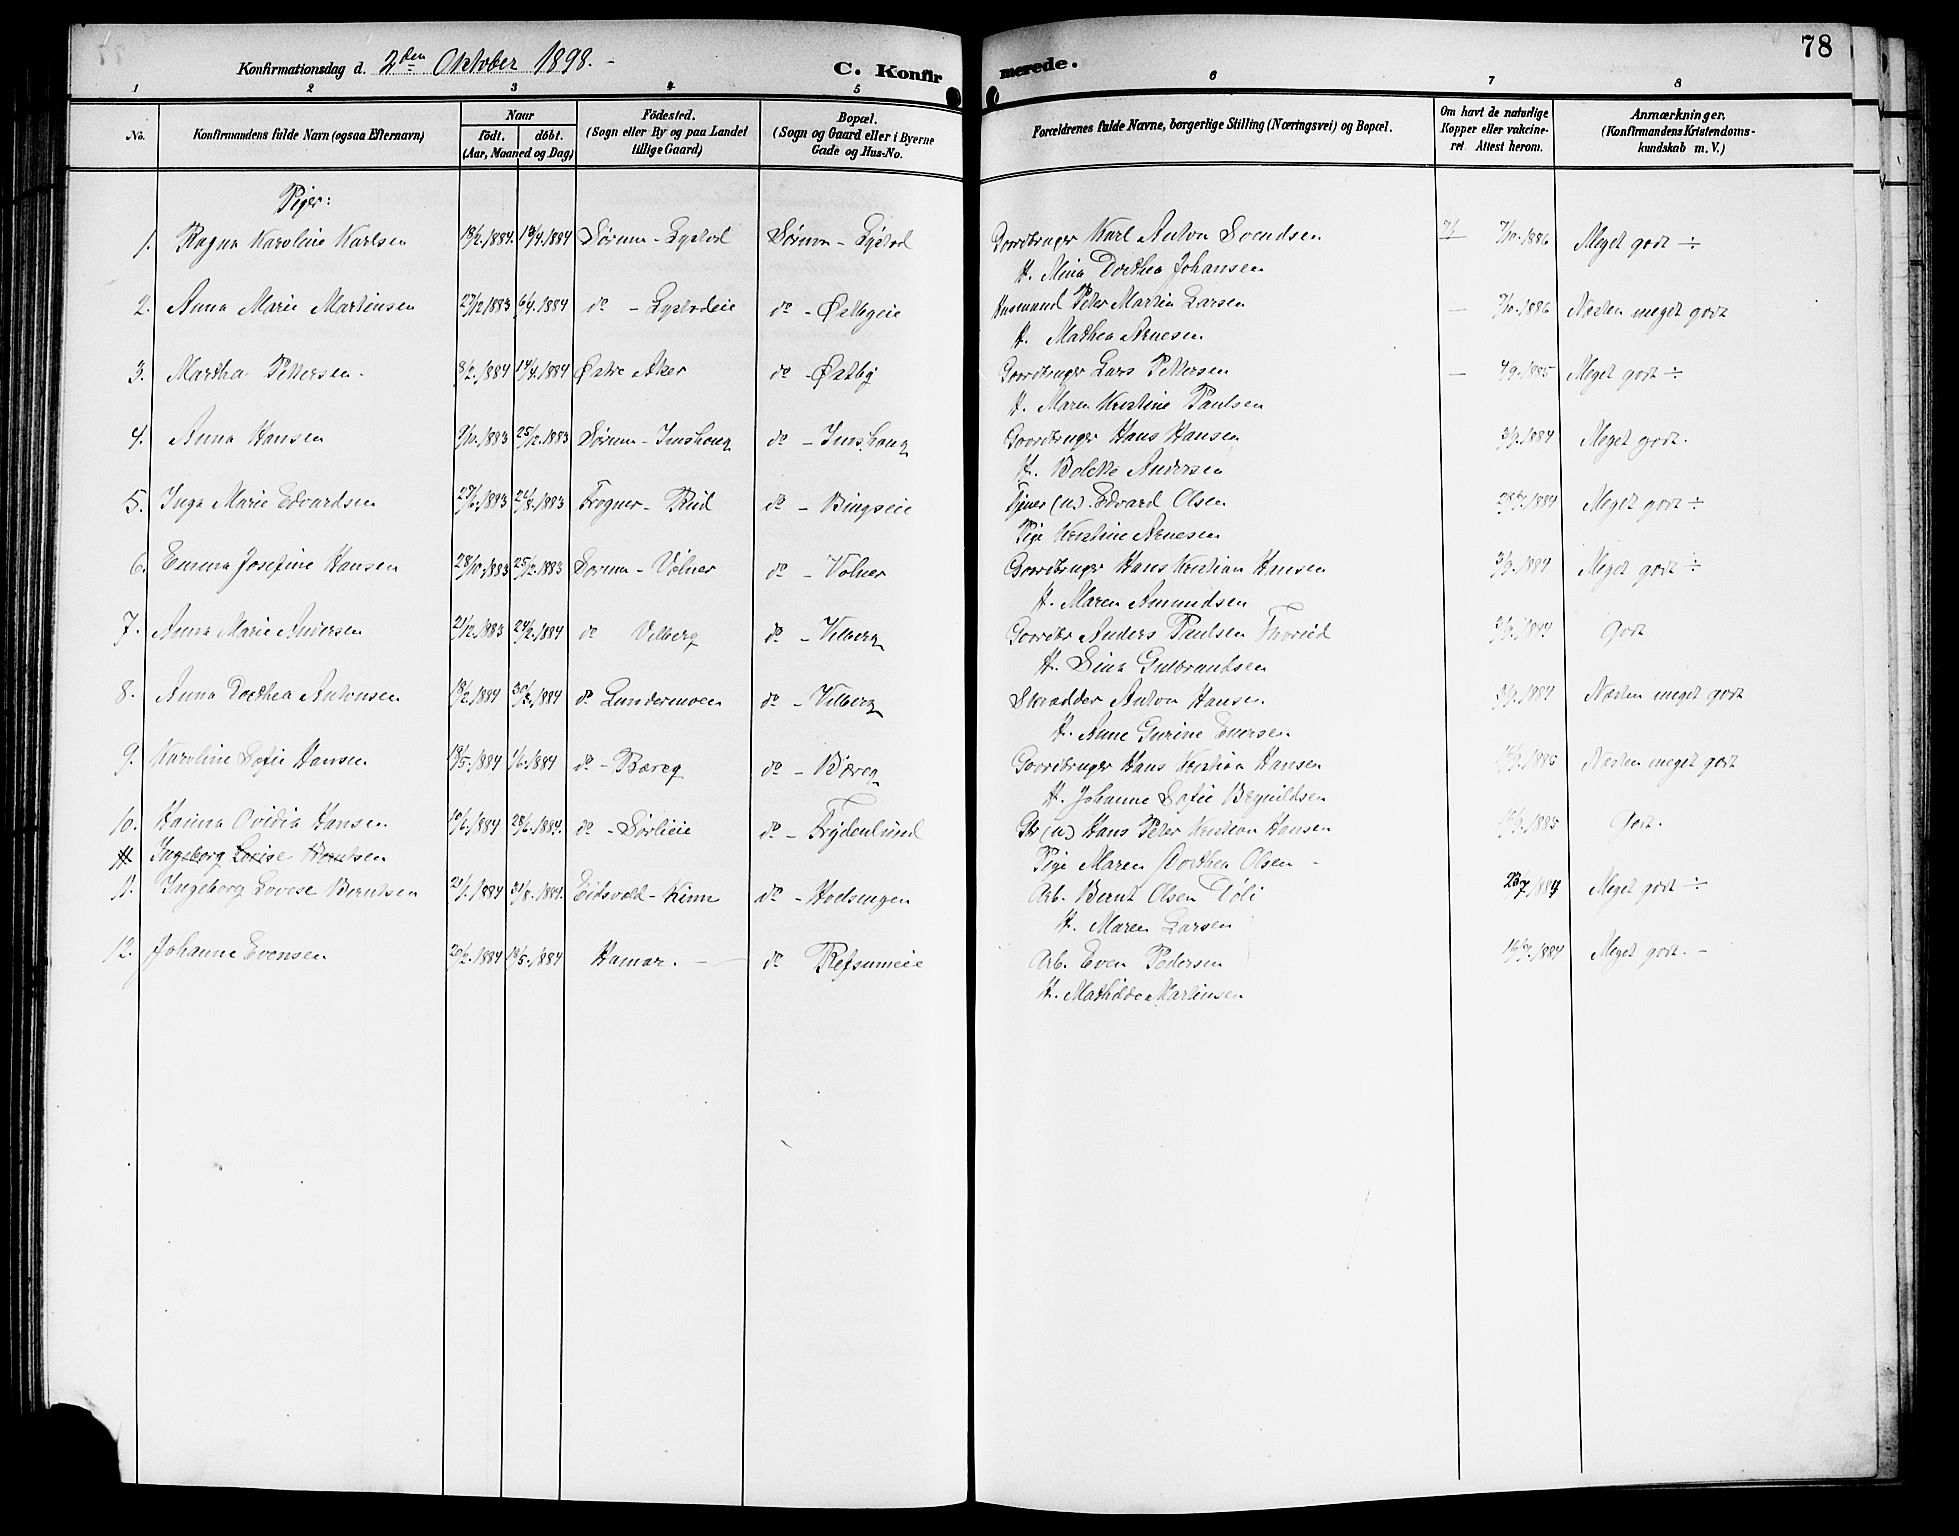 78
Konfirmationsdag d. 2den Oktober 1898.-
C. Konfirmerede.
1 2 3 4 5 6 7 8
No.
Konfirmandens fulde Navn (ogsaa Efternavn)
Naar
födt. döbt.
(Aar, Maaned og Dag)
Födested.
(Sogn eller By og paa Landet
tillige Gaard)
Bopæl.
(Sogn og Gaard eller i Byerne
Gade og Hus-No.
Forældrenes fulde Navne, borgerlige Stilling (Næringsvei) og Bopæl.
Om havt de naturlige
Kopper eller vakcine-
ret. Attest herom.
Anmærkninger.
(Konfirmandens Kristendoms-
kundskab m. V.)
Piger:
1. Ragna Karoline Karlsen 18/2.1884. 14/4.1884 Sørum - Lystad Sørum - Lystad Gaardbruger Karl Anton Svendsen 7/10.1886 Meget godt ÷
H. Mina Dorthea Johansen
2. Anna Marie Martinsen 27/12.1883 6/4.1884 do - Lystadeie do - Østbyeie Husmand Peter Martin Larsen — 7/10.1886 Næsten meget godt
H. Mathea Arnesen
3. Martha Pettersen. 8/2.1884 14/4.1884 Østre Aker do - Østby Gaardbruger Lars Pettersen — 4/9.1885 Meget godt ÷
H. Maren Kristine Paulsen
4. Anna Hansen 9/10.1883 25/12.1883 Sørum - Imshaug do - Imshaug Gaardbruger Hans Hansen 3/9.1884 Meget godt.
H. Bolette Andersen
5. Inga Marie Edvardsen 27/6.1883 26/8.1883 Frogner - Rud do - Bingseie Tjener (u). Edvard Olsen Meget godt ÷
Pige Kristine Arnesen
6. Emma Josefine Hansen 28/10.1883 25/12.1883 Sorum - Volner do - Volner Gaardbruger Hans Kristian Hansen 3/9.1884 Meget godt ÷
H. Maren Amundsen
7. Anna Marie Andersen 21/12.1883 24/2.1884 do Vilberg do - Vilberg Gaardbr Anders Paulsen Godt
H. Lina Gulbrandsen
8. Anna Dorthea Antonsen 18/2.1884 30/3.1884 do Lundermoen do - Vilberg Skrædder Anton Hansen 3/9.1884 Næsten meget godt
H. Anne Gurine Evensen
9. Karoline Sofie Hansen 18/5.1884 1/6.1884 do - Bæreg do - Bæreg Gaardbruger Hans Kristian Hansen Næsten meget godt
H. Johanne Sofie Brynildsen
10. Hanna Ovidia Hansen 10/6.1884 28/6.1884. do - Sørlieie do - Frydenlund Gbr (u) Hans Peter Kristian Hansen Godt.
Pige Maren Dorthea Olsen -
11 Ingeborg Lovise Berntsen
11. Ingeborg Lovise Berntsen 21/1.1884 31/8.1884. Eidsvold - Kinn do - Hodsengen Arb. Bernt Olsen Døli Meget godt ÷
H. Maren Larsen
12. Johanne Evensen 20/2.1884 18/5.1884 Hamar. — do Refsumeie Arb. Even Pedersen Meget godt. -
H. Mathilde Martinsen